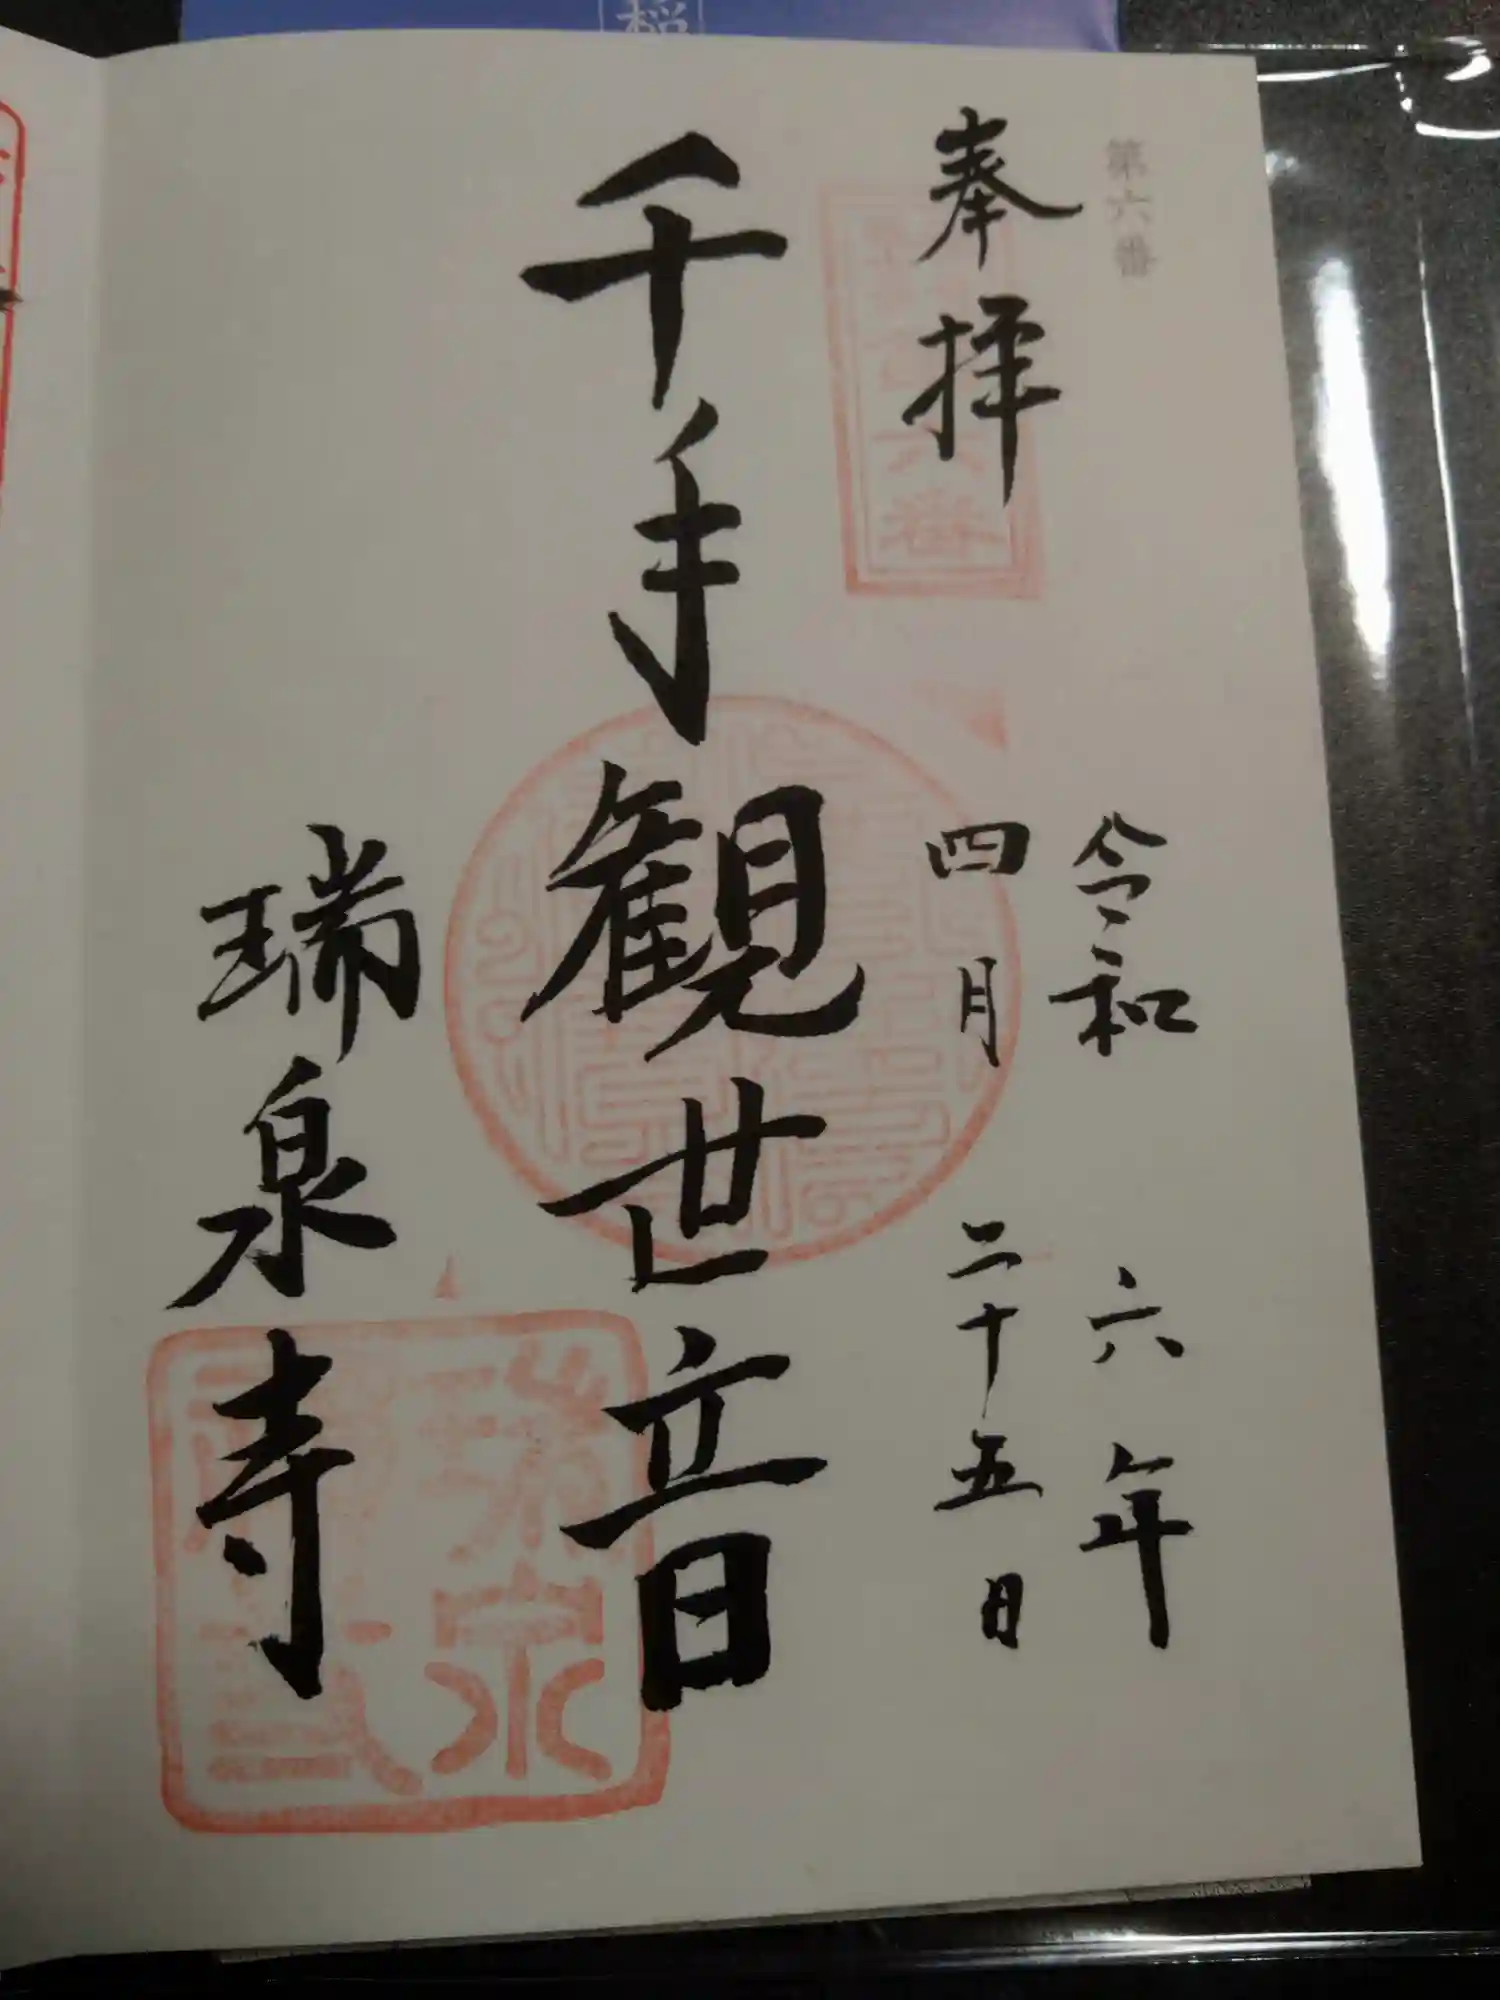 第六番
奉拝
令和六年
四月二十五日
千手観世音
瑞泉寺